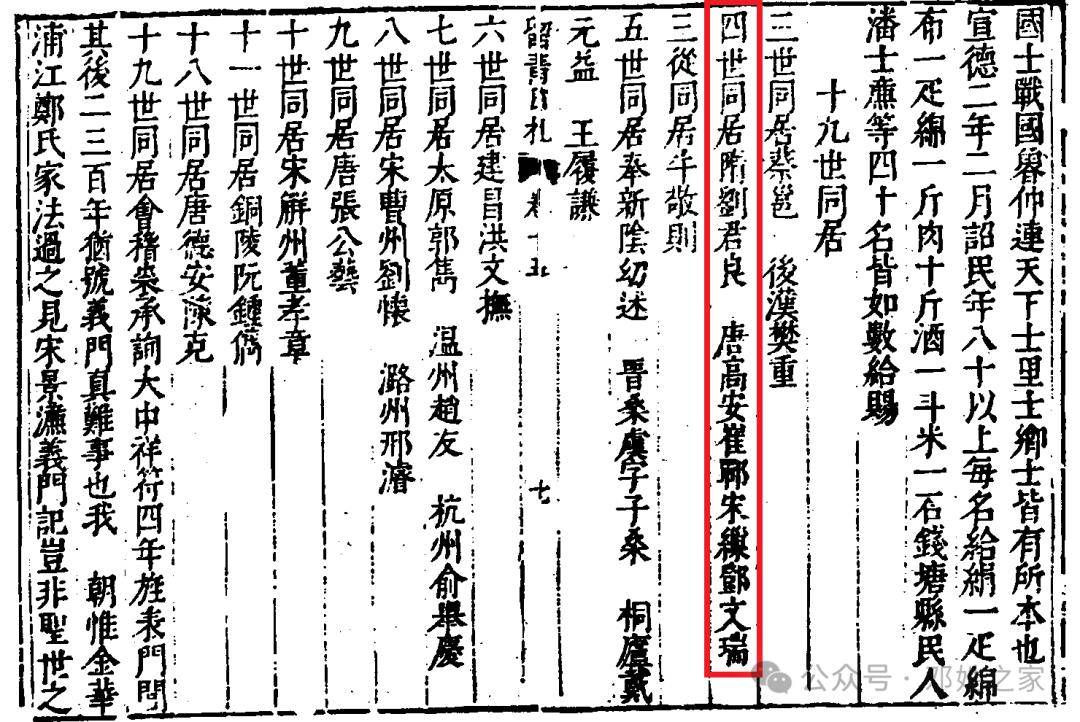 國士戰國魯仲連天下士里士鄉士皆有所本也
宣德二年二月詔民年八十以上每名給絹一疋綿
布一疋綿一斤肉十斤酒一斗米一石錢塘縣民人
潘士㢘等四十名皆如數給賜
十九世同居
三世同居蔡邕 後漢樊重
四世同居隋劉君良 唐高安崔鄲宋鄧文瑞
三從同居牛敬則
五世同居奉新陰幼述 晋桑虞字子桑 桐廬戴
元益 王履謙
留青日札 卷十五 七
六世同居建昌洪文撫
七世同居太原郭雋 温州趙友 杭州俞舉慶
八世同居宋曹州劉懷 潞州邢濬
九世同居唐張公藝
十世同居宋解州董孝章
十一世同居銅陵阮鍾儁
十八世同居唐德安陳克
十九世同居會稽裘承詢大中祥符四年旌表門閭
其後二三百年猶號義門真難事也我 朝惟金華
浦江鄭氏家法過之見宋景濂義門記豈非聖世之
公众号 · 邓姓之家